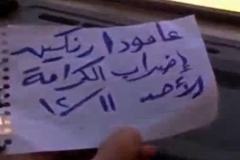 عامودا رنكين
إضراب الكرامة
الأحد ١١ / ١٢